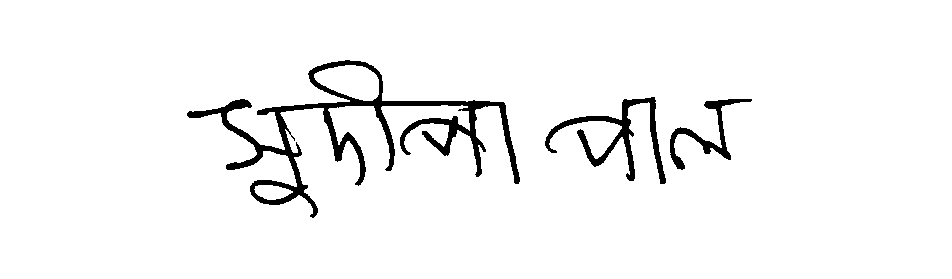 সুদীপা পাল